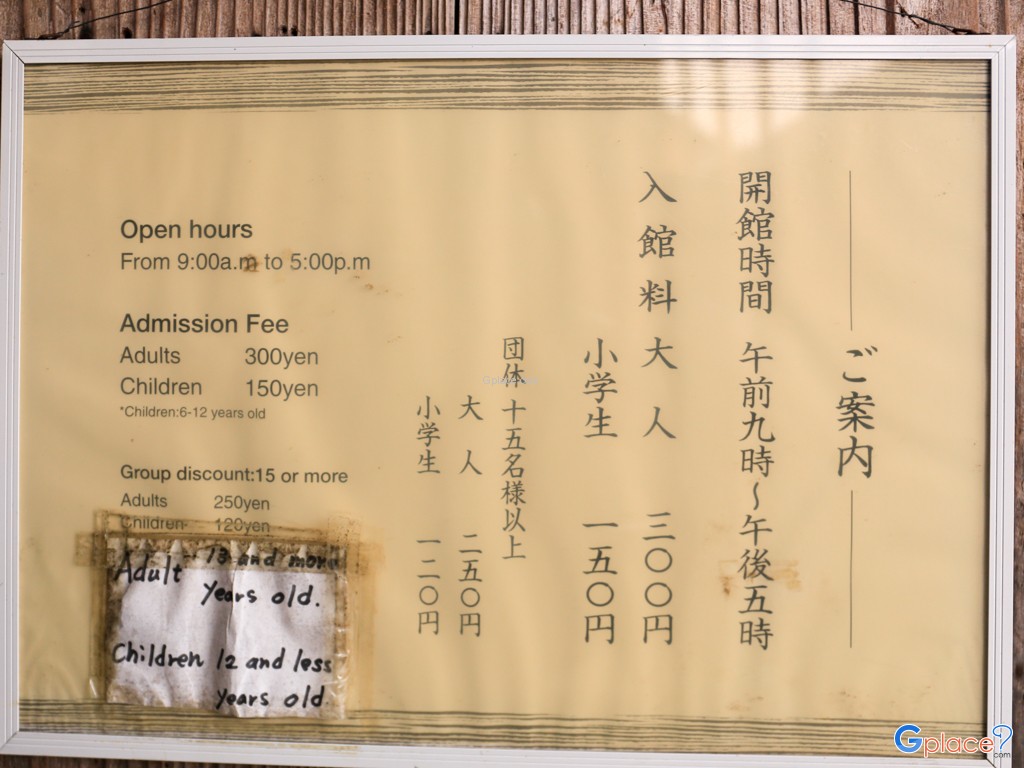 ご案内
開館時間 午前九時~午後五時
入館料 大人 三〇〇円
小学生 一五〇円
団体 十五名様以上
大人 二五〇円
小学生 一二〇円
Open hours
From 9:00a.m to 5:00p.m
Admission Fee
Adults 300yen
Children 150yen
*Children:6-12 years old
Group discount:15 or more
Adults 250yen
Children 120yen
Adult -- 13 and more
years old.
Children 12 and less
years old.
Gplace
.com